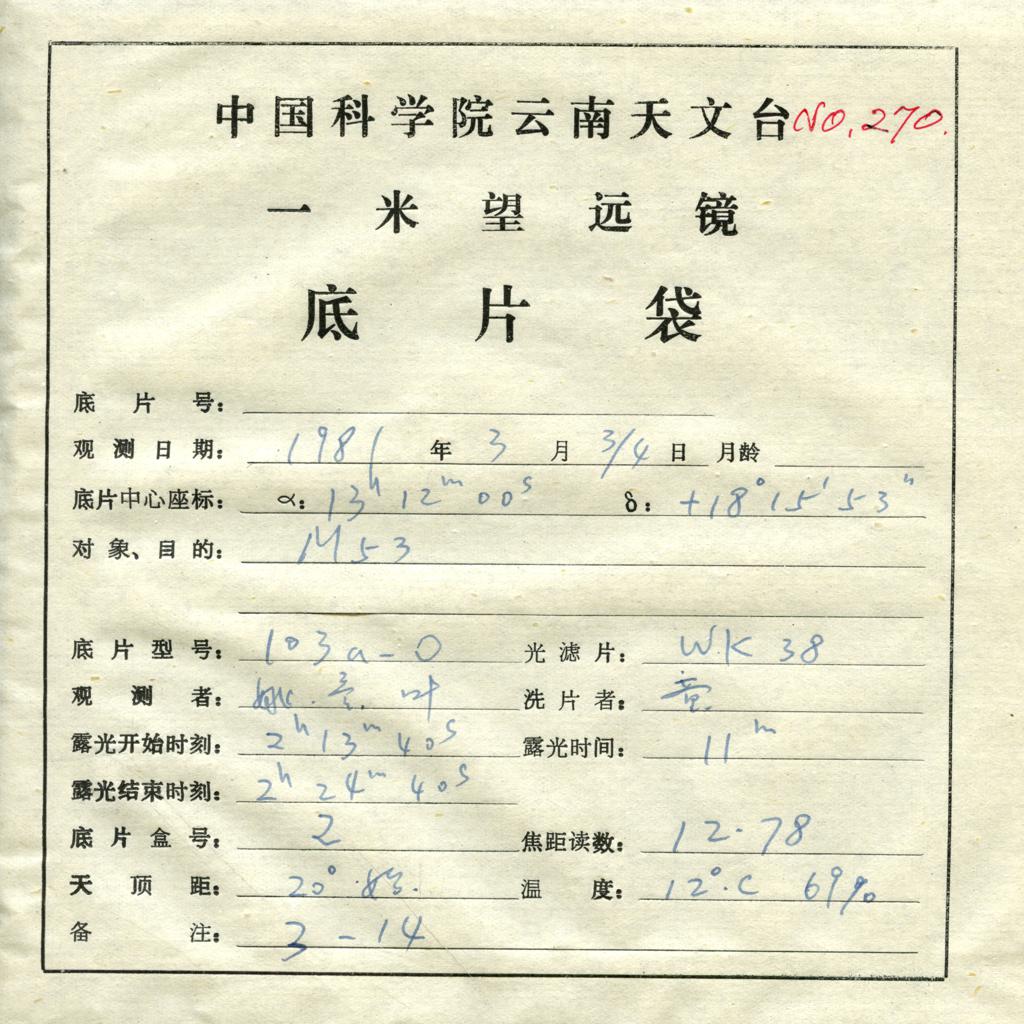 中国科学院云南天文台 NO.270.
一米望远镜
底片袋
底片号：
观测日期：1981年3月3/4日 月龄
底片中心座标：α：13h12m00s δ：+18°15′53″
对象、目的：M53
底片型号：103a-O 光滤片：W.K 38
观测者：姚. 叶 洗片者：
露光开始时刻：2h13m40s 露光时间：11m
露光结束时刻：2h24m40s
底片盒号：2 焦距读数：12.78
天顶距：20° 温度：12°.C 69%
备注：3-14